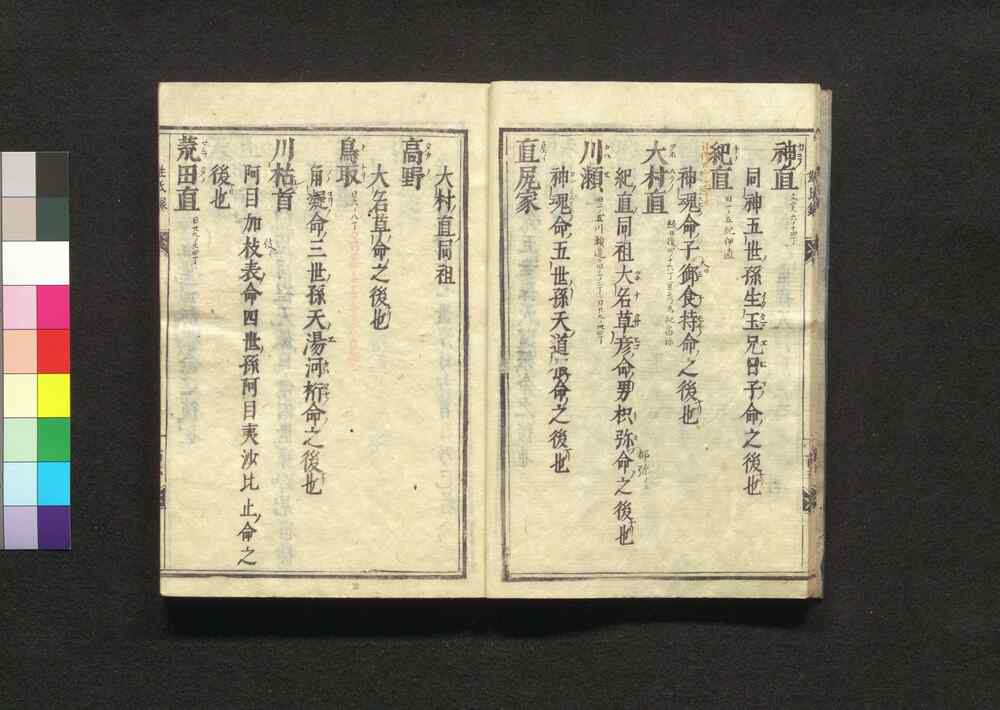 神直
同神五世孫生玉兄日子命之後也
紀直
神魂命子御食持命之後也
大村直
紀直同祖大名草彦命男枳弥都弥命之後也
川瀬
神魂命五世孫天道根命之後也
直尻家
大村直同祖
高野
大名草命之後也
鳥取
角凝命三世孫天湯河桁命之後也
川枯首
阿目加枝表命四世孫阿目夷沙比止命之
後也
荒田直